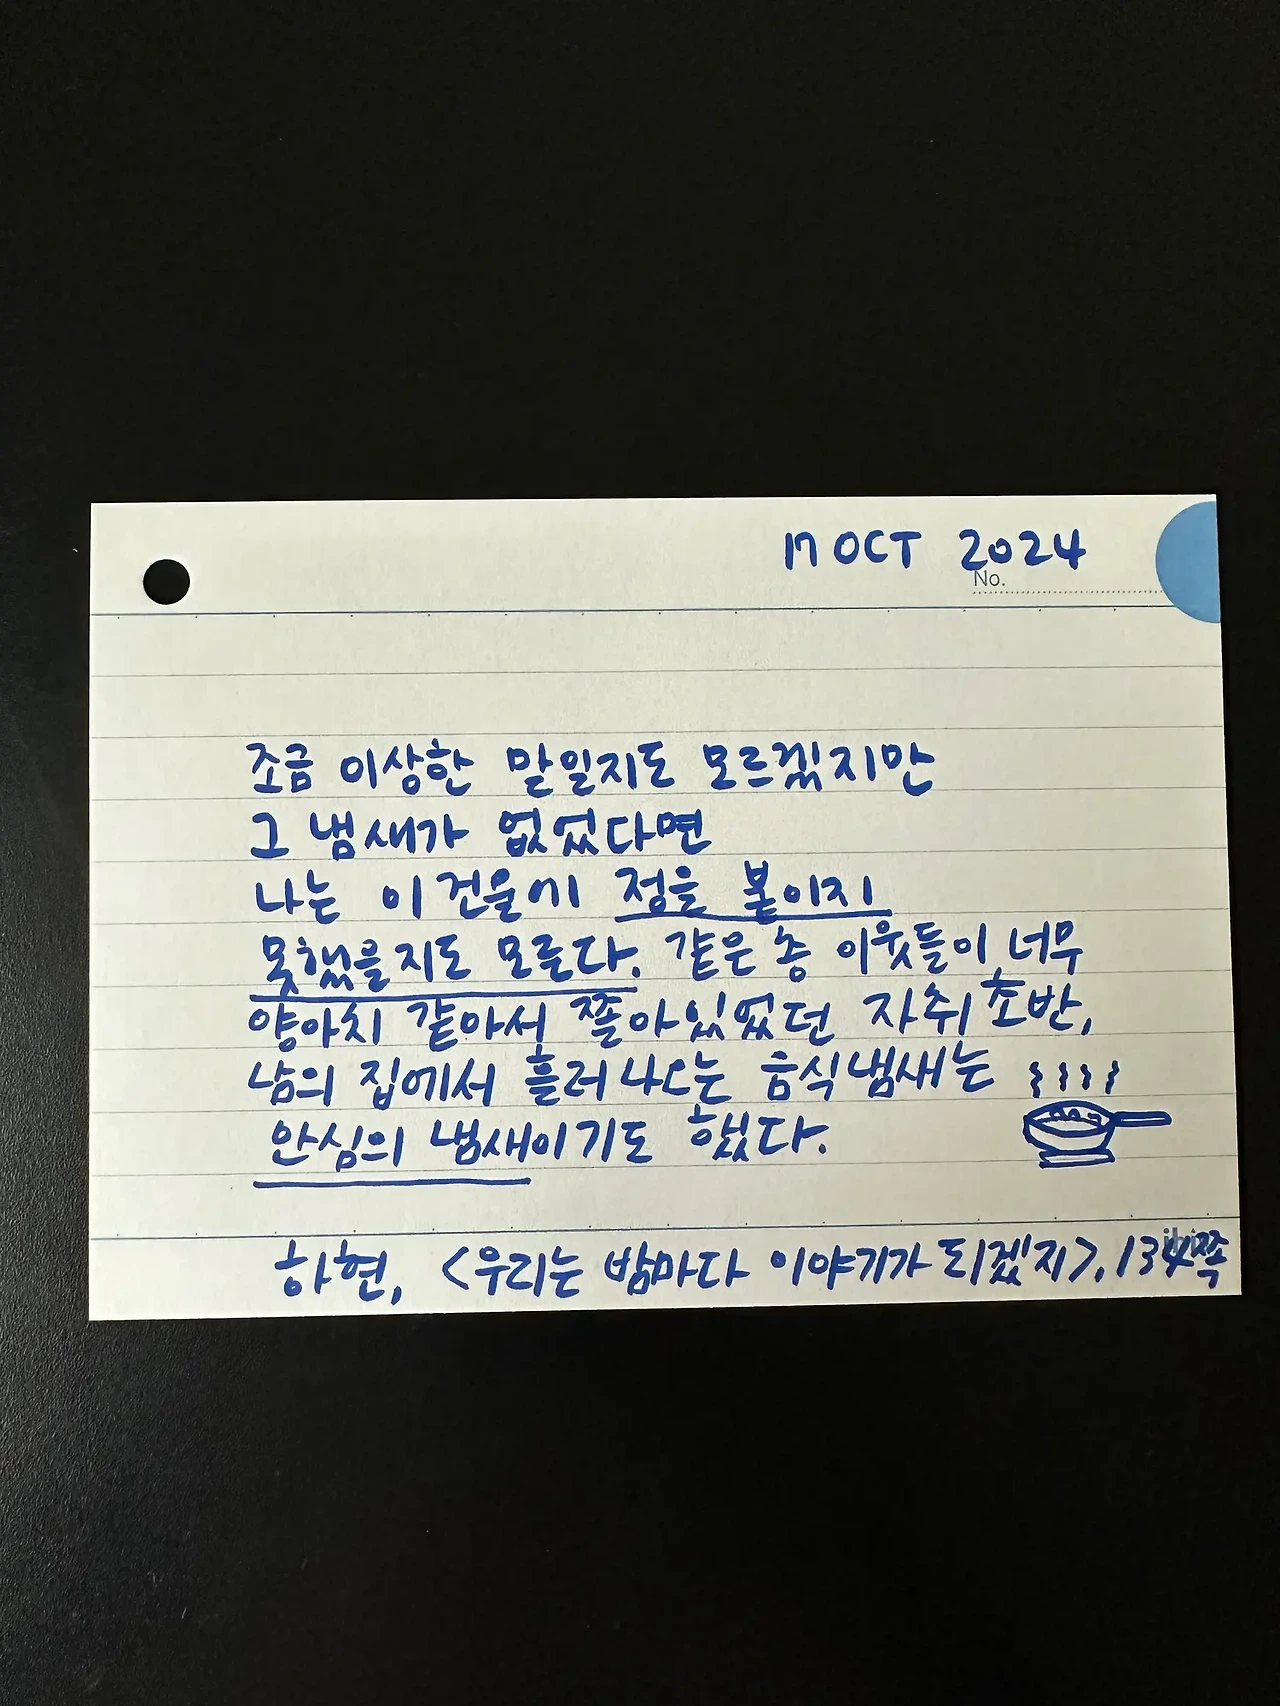 17 OCT 2024
No.
조금 이상한 말일지도 모르겠지만
그 냄새가 없었다면
나는 이 건물에 정을 붙이지
못했을지도 모른다. 같은 층 이웃들이 너무
양아치 같아서 쫄아있었던 자취 초반,
남의 집에서 흘러나오는 음식냄새는
안심의 냄새이기도 했다.
하현, <우리는 밤마다 이야기가 되겠지>, 134쪽